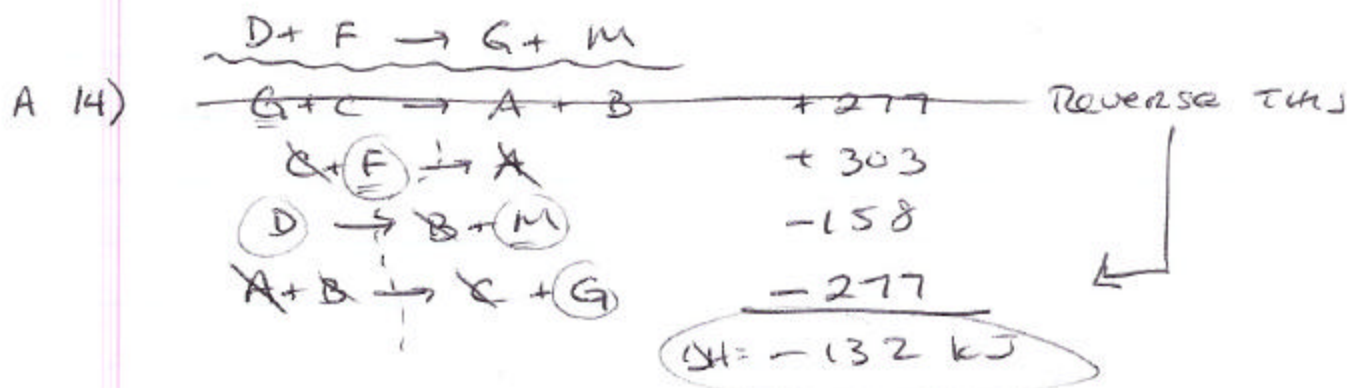 D + F → G + M
A 14) G + C → A + B + 277 Reverse This
C + F → A + 303
D → B + M -158
A + B → C + G -277
ΔH = -132 kJ